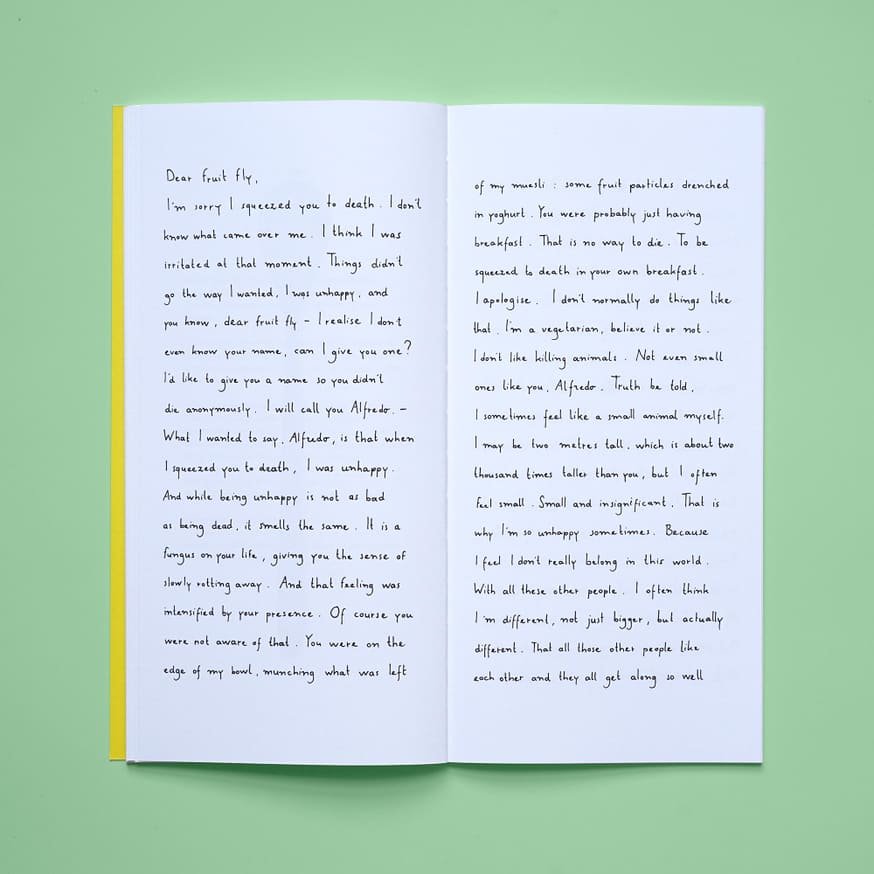 Dear fruit fly,
I'm sorry I squeezed you to death. I don't
know what came over me. I think I was
irritated at that moment. Things didn't
go the way I wanted, I was unhappy, and
you know, dear fruit fly – I realise I don't
even know your name, can I give you one?
I'd like to give you a name so you didn't
die anonymously. I will call you Alfredo. –
What I wanted to say, Alfredo, is that when
I squeezed you to death, I was unhappy.
And while being unhappy is not as bad
as being dead, it smells the same. It is a
fungus on your life, giving you the sense of
slowly rotting away. And that feeling was
intensified by your presence. Of course you
were not aware of that. You were on the
edge of my bowl, munching what was left
of my muesli: some fruit particles drenched
in yoghurt. You were probably just having
breakfast. That is no way to die. To be
squeezed to death in your own breakfast.
I apologise. I don't normally do things like
that. I'm a vegetarian, believe it or not.
I don't like killing animals. Not even small
ones like you, Alfredo. Truth be told,
I sometimes feel like a small animal myself.
I may be two metres tall, which is about two
thousand times taller than you, but I often
feel small. Small and insignificant. That is
why I'm so unhappy sometimes. Because
I feel I don't really belong in this world.
With all these other people. I often think
I'm different, not just bigger, but actually
different. That all those other people like
each other and they all get along so well